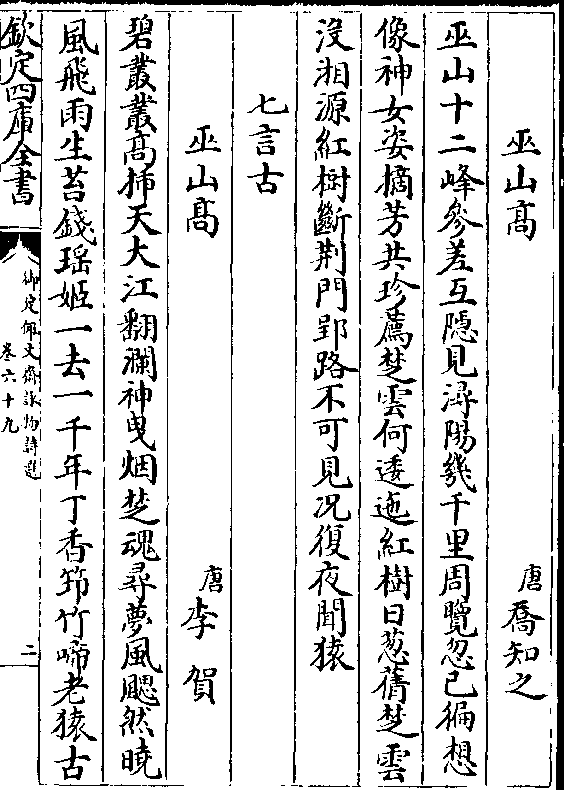 巫山高　唐 喬知之
巫山十二峰參差互隱見潯陽幾千里周覽忽已徧想
像神女姿摘芳共珍薦楚雲何逶迤紅樹日葱蒨楚雲
沒湘源紅樹斷荆門郢路不可見况復夜聞猿
七言古
巫山髙　唐 李賀
碧叢叢髙揷天大江翻瀾神曳烟楚魂尋夢風颸然曉
風飛雨生苔錢瑶姬一去一千年丁香筇竹啼老猿古
欽定四庫全書
御定佩文齋詠物詩選
卷六十九
二